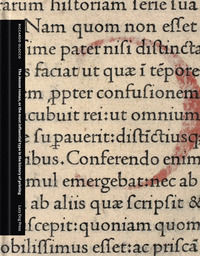 RICCARDO OLOCCO
The roman romans, or the most influential type in the history of printing
Lazy Dog Press
arum historiam serie ſua
Nam quom non eſſet
ime pater niſi diſtincta
s faciat ut quæ i tēpore
m ꝓpter confuſionem
cubuit rei: ut omnium
ſu pauerit: diſtictiuſq
ibus. Conferendo enim
mul emergebat: nec ab
ab aliis quæ ſcripſit &
ſcepit: quoniam quom
obiliſſimus eſſet: ac priſcā